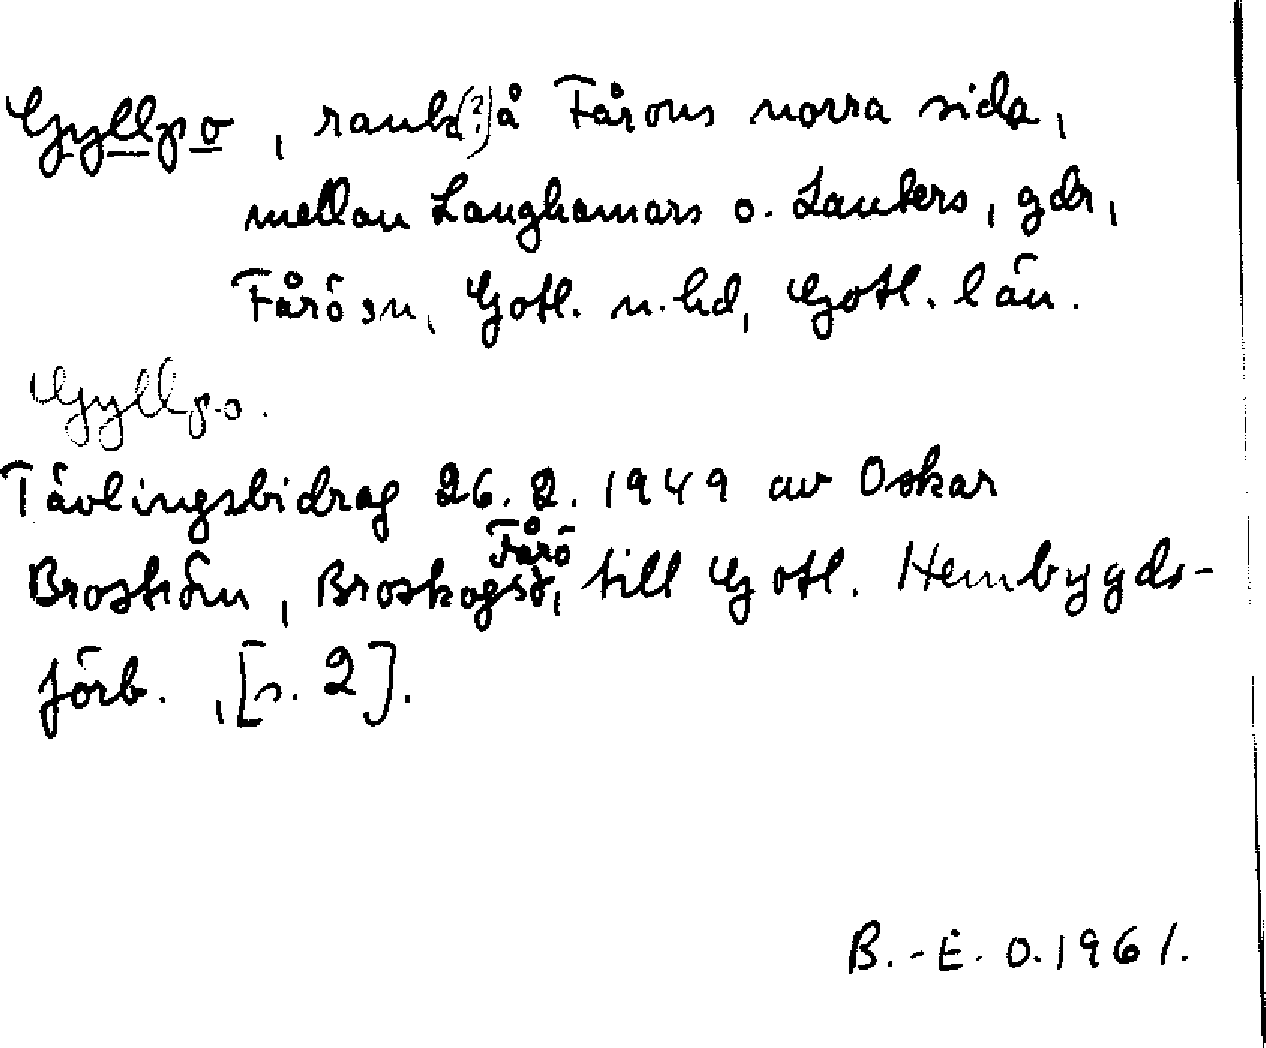 Gyllgo, rauk(?) å Fåröns norra sida,
mellan Langhamars o. Lauters, gdr,
Fårö sn, Gotl. n. hd, Gotl. län.
Gyllgo.
Tävlingsbidrag 26. 2. 1949 av Oskar
Broström, Broskogs, Fårö, till Gotl. Hembygds-
förb., [s. 2].
B.-E. O. 1961.